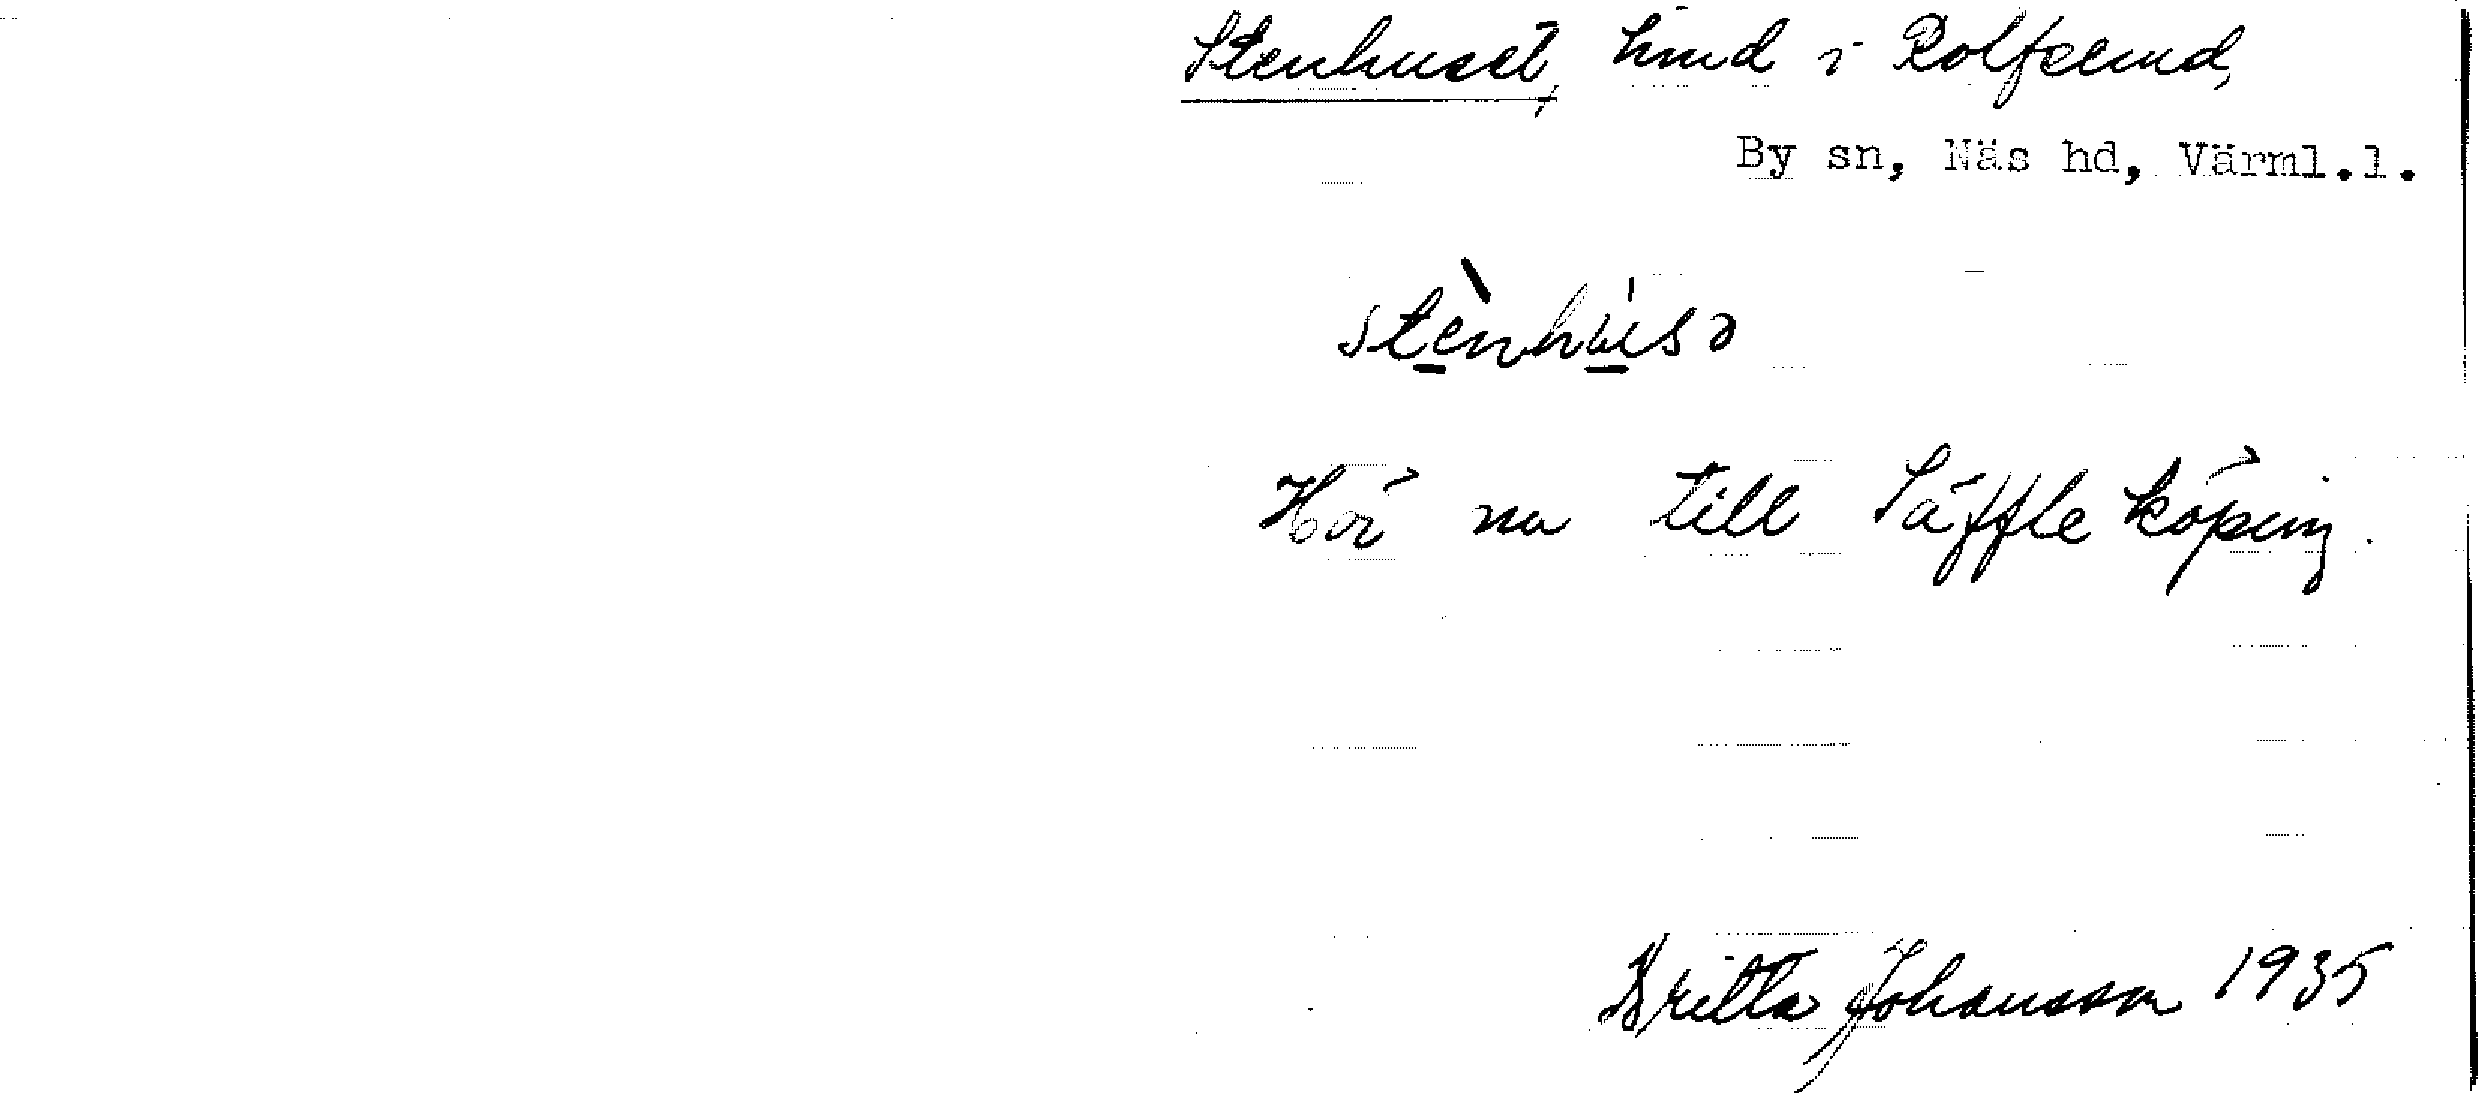 Stenhuset, hmd i Rolfserud,
By sn, Näs hd, Värml.l.
stènhùsə
Hör nu till Säffle köping.
Britta Johansson 1935